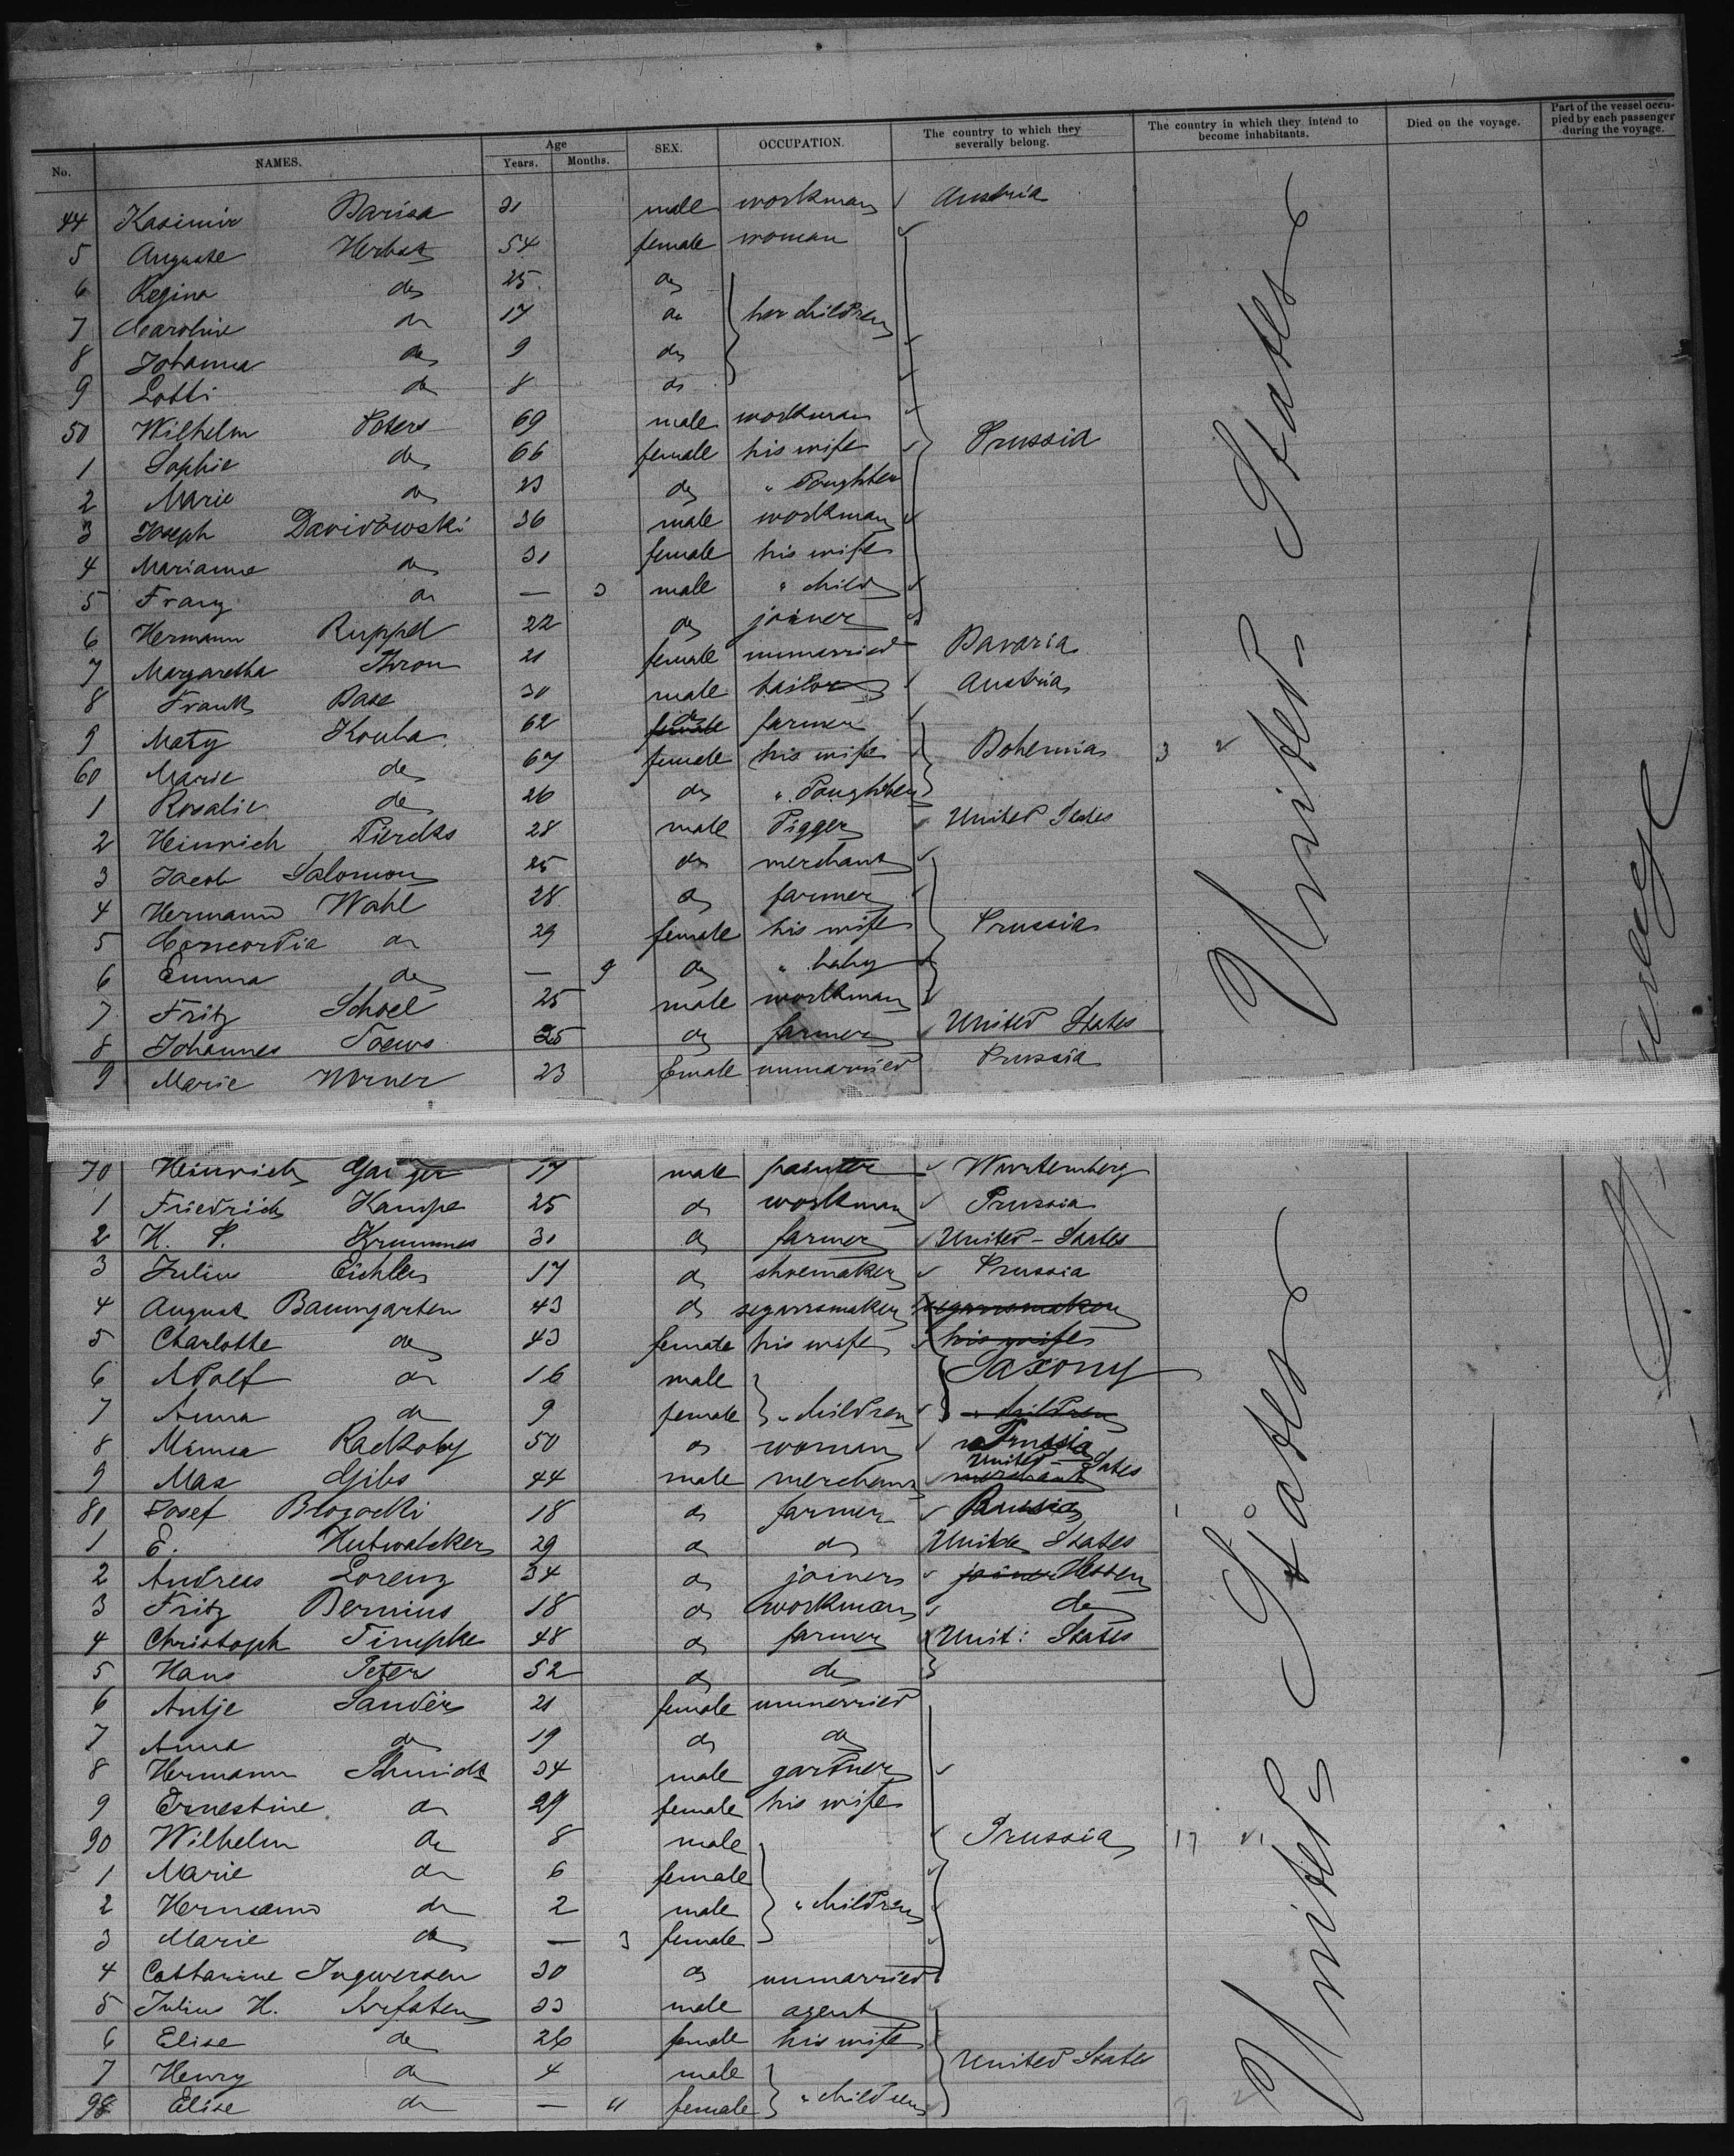 No. NAMES. Age Years. Months. SEX. OCCUPATION. The country to which they severally belong. The country in which they intend to become inhabitants. Died on the voyage. Part of the vessel occupied by each passenger during the voyage.
44 Kasimir Barisa 31 male workman Austria
5 Auguste Herbst 54 female woman
6 Regina do 25 do
7 Caroline do 17 do her children
8 Johanna do 9 do
9 Lotti do 8 do
50 Wilhelm Peters 69 male workman
1 Sophie do 66 female his wife Prussia
2 Marie do 23 do " Doughter
3 Joseph Davidowski 36 male workman
4 Marianne do 31 female his wife
5 Franz do — 3 male " child
6 Hermann Ruppel 22 do joiner
7 Margaretha Thron 21 female unmerried Bavaria
8 Frank Base 30 male tailor Austria
9 Maty Kouba 62 female do farmer
60 Marie do 67 female his wife Bohemia 3
1 Rosalie do 26 do " Doughter
2 Heinrich Diercks 28 male Digger United States
3 Jacob Salomon 25 do merchant
4 Hermann Wahl 28 do farmer
5 Concordia do 29 female his wife Prussia
6 Emma do — 9 do " baby
7 Fritz Schoel 25 male workman
8 Johannes Toews 25 do farmer United States
9 Marie Werner 23 female unmarried Prussia
United States
70 Heinrich 17 male painter Wurtemberg
1 Friedrich Kampe 25 do workman Prussia
2 H. P. Krummes 31 do farmer United-States
3 Julius Eichler 17 do shoemaker Prussia
4 August Baumgarten 43 do segarrsmaker segarrsmaker
5 Charlotte do 43 female his wife his wife
6 Adolf do 16 male Saxony
7 Anna do 9 female " children " children
8 Minna Rackoby 50 do woman Prussia
9 Max Gibs 44 male merchant merchant United-States
80 Josef Brozocki 18 do farmer Russia 1
1 E. Hutwalcker 29 do do United States
2 Andreas Lorenz 34 do joiner joiner Hessen
3 Fritz Bernius 18 do workman do
4 Christoph Timpke 48 do farmer Unit: States
5 Hans Peters 52 do do
6 Antje Sanders 21 female unmerried
7 Anna do 19 do do
8 Hermann Schmidt 34 male gardner
9 Ernestine do 29 female his wife
90 Wilhelm do 8 male Prussia 17
1 Marie do 6 female
2 Hermann do 2 male " children
3 Marie do — 3 female
4 Catharine Ingwersen 30 do unmarried
5 Julius H. 33 male agent
6 Elise do 26 female his wife
7 Henry do 4 male United States
98 Elise do — 11 female " children
United States